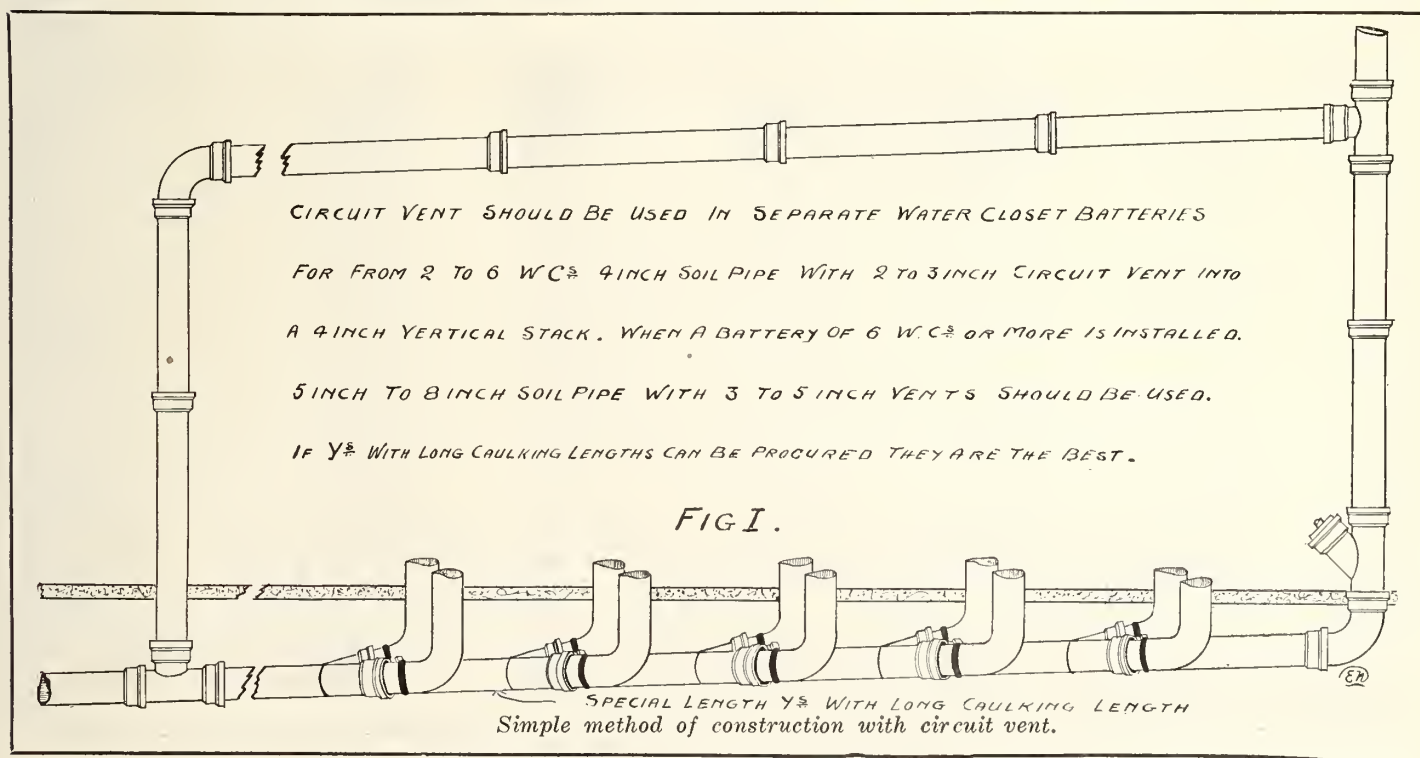 CIRCUIT VENT SHOULD BE USED IN SEPARATE WATER CLOSET BATTERIES
FOR FROM 2 TO 6 W C<sup>s</sup> 4 INCH SOIL PIPE WITH 2 TO 3 INCH CIRCUIT VENT INTO
A 4 INCH VERTICAL STACK. WHEN A BATTERY OF 6 W.C<sup>s</sup> OR MORE IS INSTALLED.
5 INCH TO 8 INCH SOIL PIPE WITH 3 TO 5 INCH VENTS SHOULD BE USED.
IF Y<sup>s</sup> WITH LONG CAULKING LENGTHS CAN BE PROCURED THEY ARE THE BEST.
FIG I.
EN
SPECIAL LENGTH Y<sup>s</sup> WITH LONG CAULKING LENGTH
Simple method of construction with circuit vent.